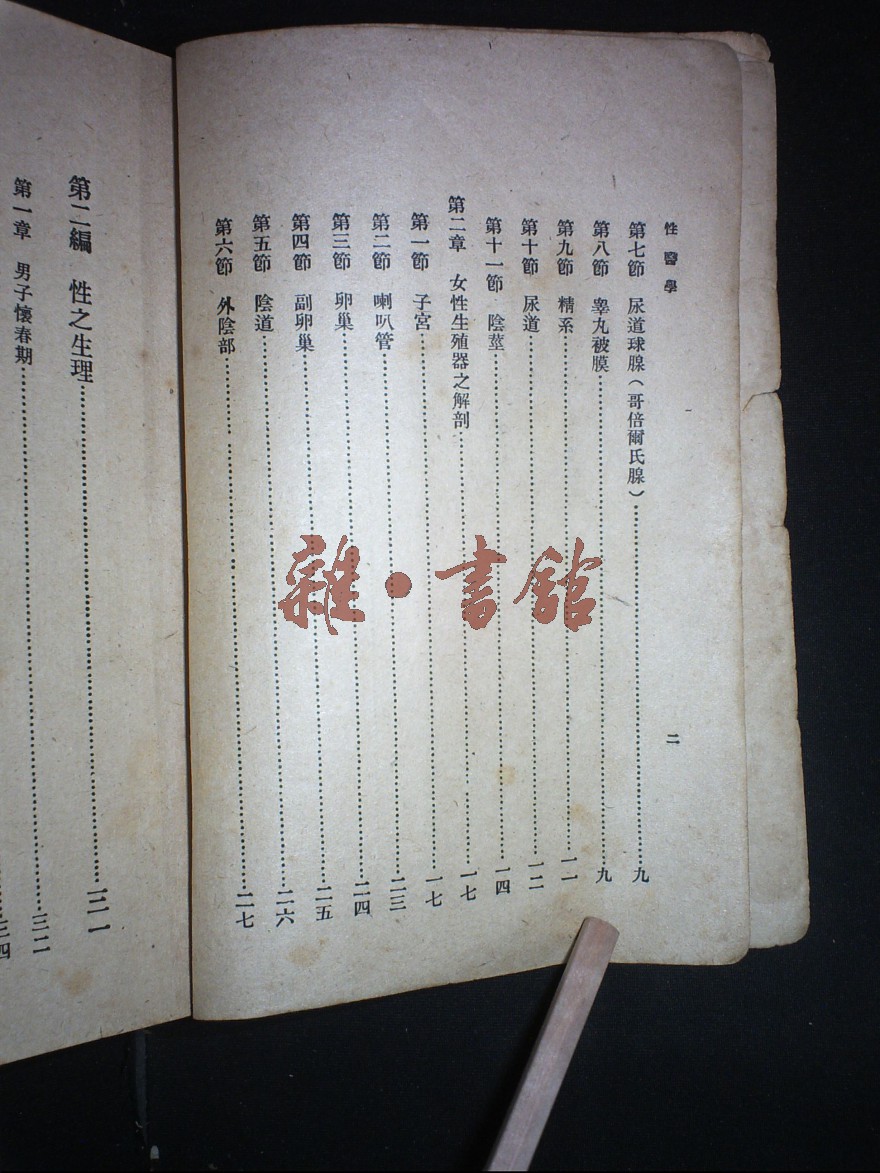 性醫學
二
第七節 尿道球腺(哥倍爾氏腺)……九
第八節 睾丸被膜……九
第九節 精系……一一
第十節 尿道……一二
第十一節 陰莖……一四
第二章 女性生殖器之解剖……一七
第一節 子宮……一七
第二節 喇叭管……二三
第三節 卵巢……二四
第四節 副卵巢……二五
第五節 陰道……二六
第六節 外陰部……二七
第二編 性之生理……
第一章 男子懷春期……三二
三四
雜·書館